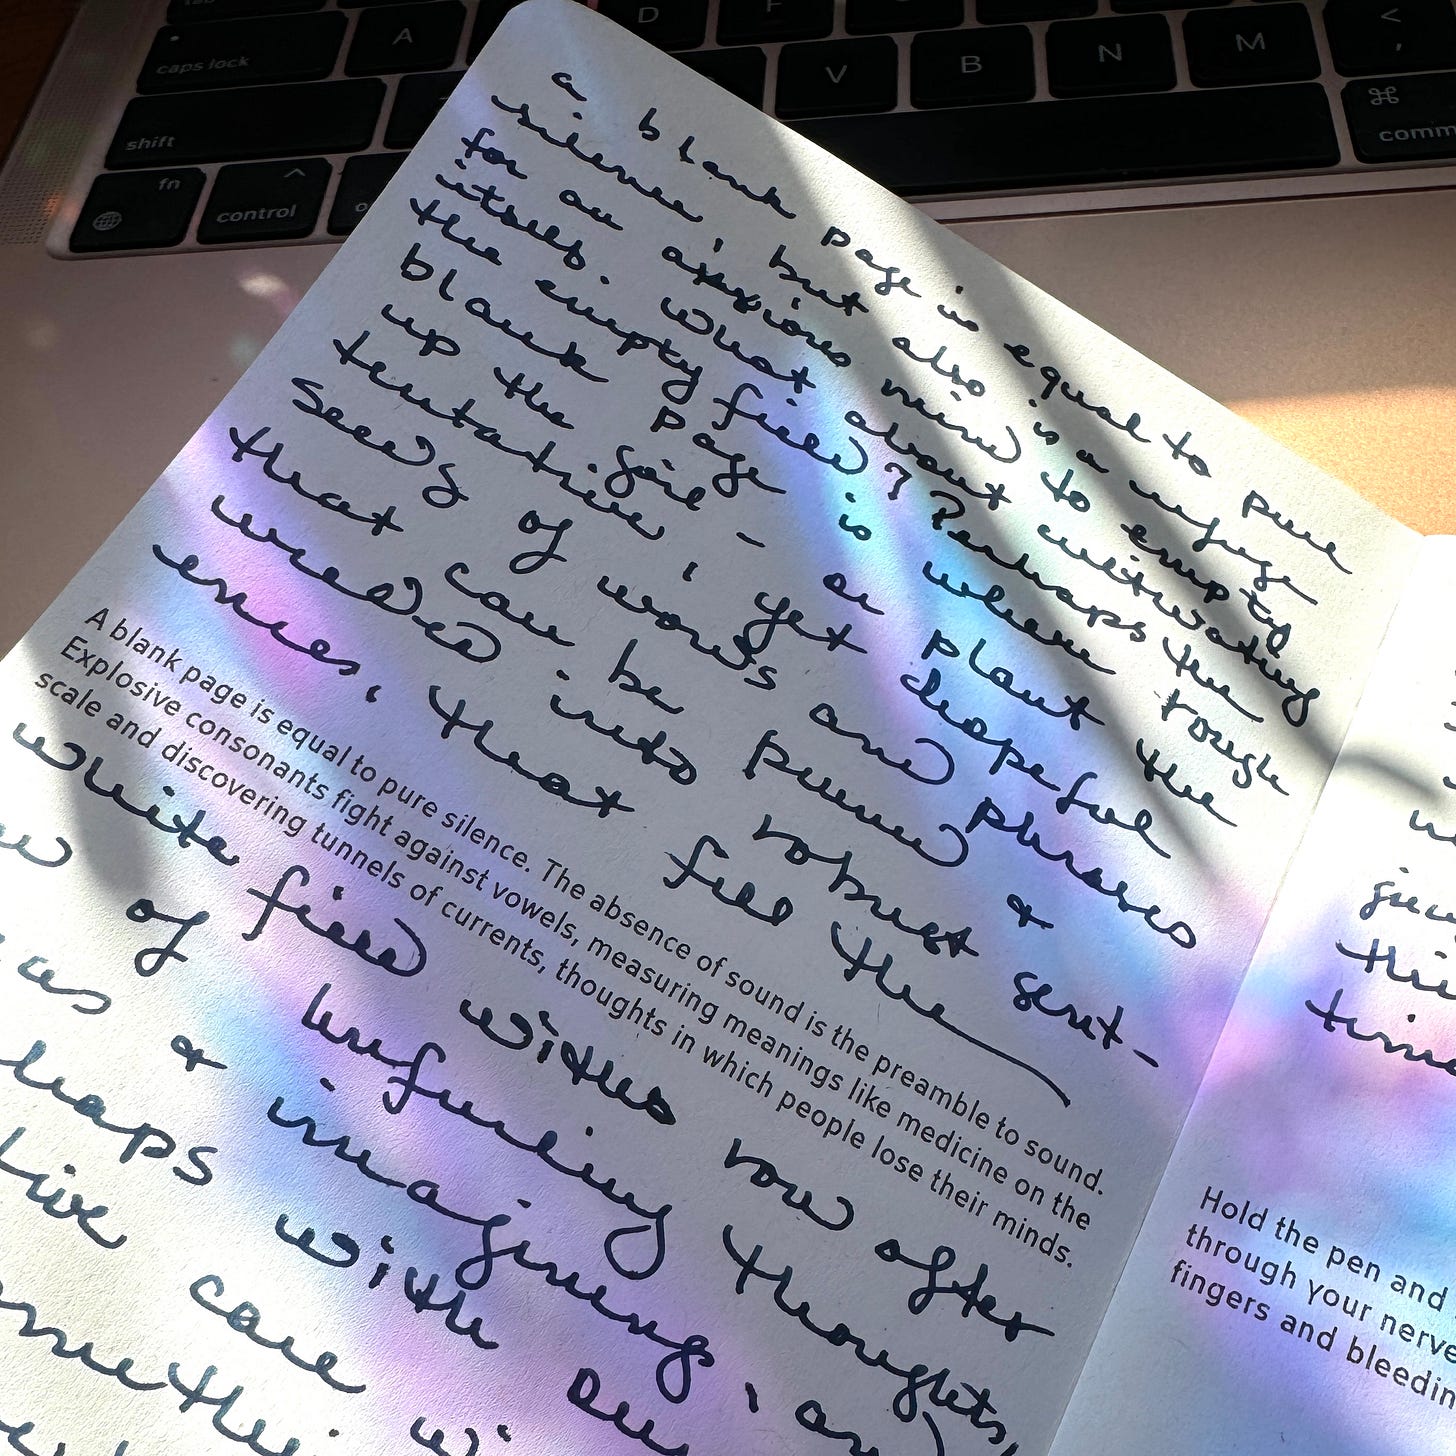 caps lock
A
D
F
V
B
N
M
<
,
shift
⌘
fn
control
^
a blank page is equal to pure
silence, but also is a refuge
for an anxious mind to empty
itself. What about cultivating
the empty field? Perhaps the
blank page is where rough
up the soil – or plant the
tentative, yet hopeful
seeds of words and phrases
that can be pruned &
weeded into robust sent-
ences, that fill the
A blank page is equal to pure silence. The absence of sound is the preamble to sound.
Explosive consonants fight against vowels, measuring meanings like medicine on the
scale and discovering tunnels of currents, thoughts in which people lose their minds.
white field with row after
of unfurling thoughts,
& imagining, and
with
care
Hold the pen and
through your nerve
fingers and bleedin